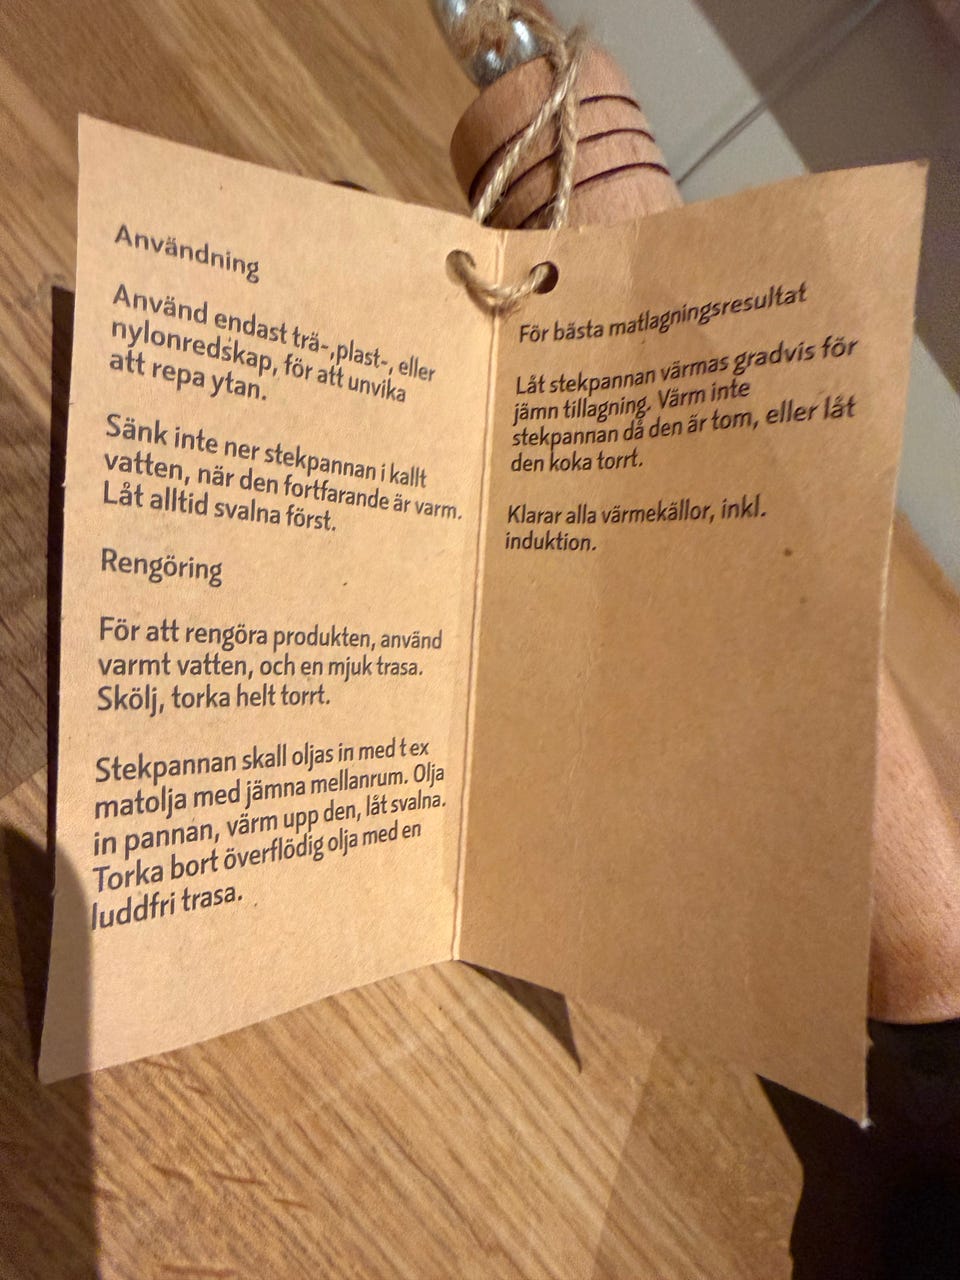 Användning
Använd endast trä-,plast-, eller
nylonredskap, för att unvika
att repa ytan.
Sänk inte ner stekpannan i kallt
vatten, när den fortfarande är varm.
Låt alltid svalna först.
Rengöring
För att rengöra produkten, använd
varmt vatten, och en mjuk trasa.
Skölj, torka helt torrt.
Stekpannan skall oljas in med t ex
matolja med jämna mellanrum. Olja
in pannan, värm upp den, låt svalna.
Torka bort överflödig olja med en
luddfri trasa.
För bästa matlagningsresultat
Låt stekpannan värmas gradvis för
jämn tillagning. Värm inte
stekpannan då den är tom, eller låt
den koka torrt.
Klarar alla värmekällor, inkl.
induktion.